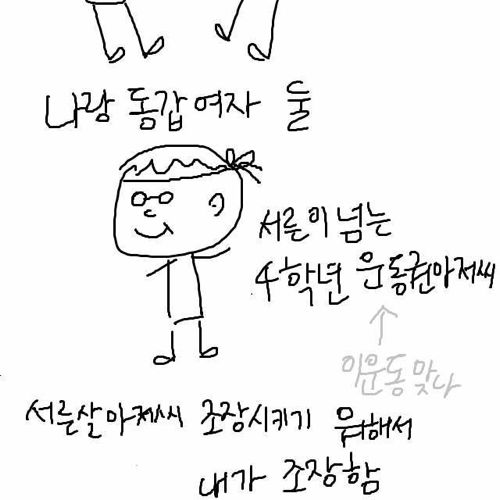 나랑 동갑 여자 둘
서른이 넘는
4학년 운동권아저씨
이운동 맞나
서른살아저씨 조장시키기 뭐해서
내가 조장함